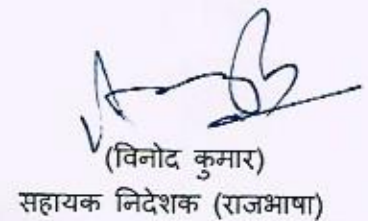 (विनोद कुमार)
सहायक निदेशक (राजभाषा)